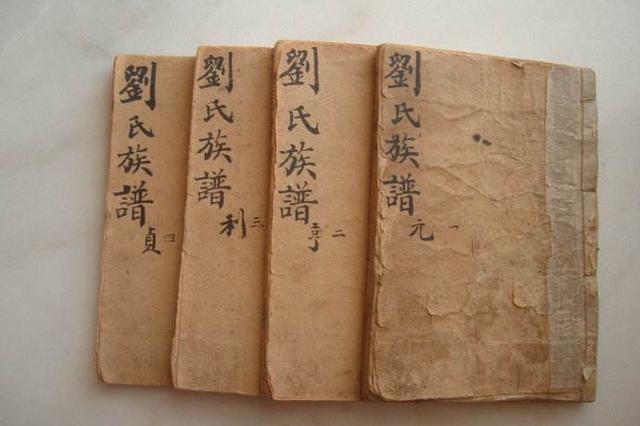 劉氏族譜
元
一
劉氏族譜
亨
二
劉氏族譜
利
三
劉氏族譜
貞
四